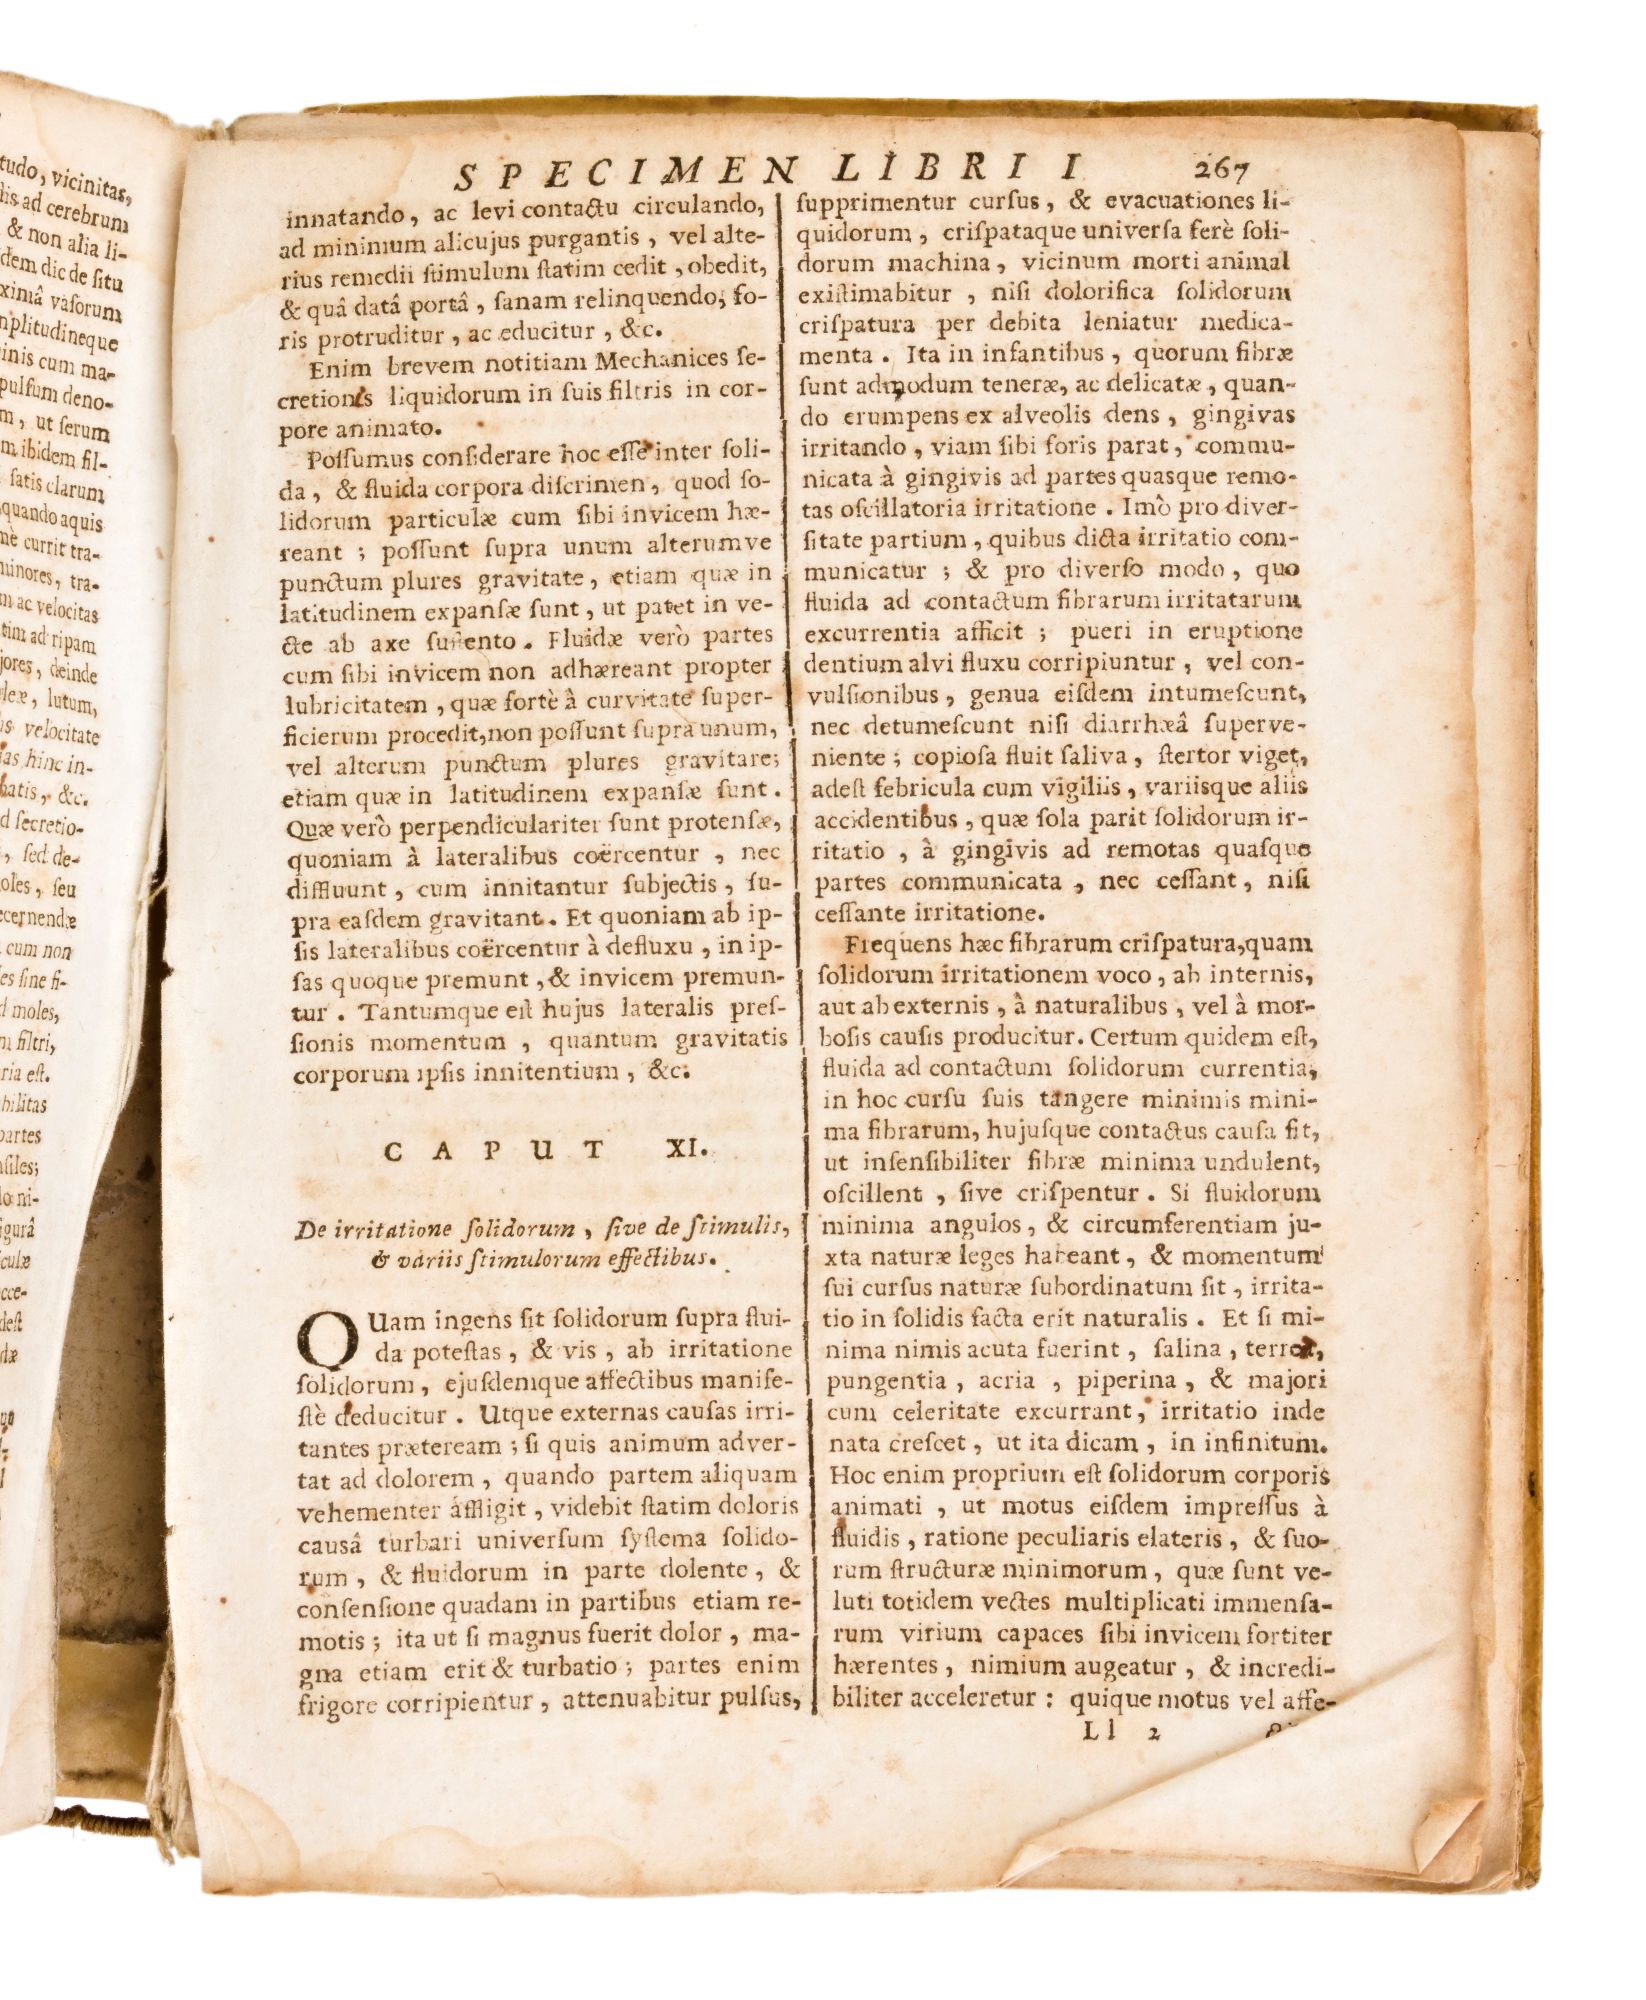 tudo, vicinitas,
lis ad cerebrum
& non alia li-
dem dic de ſitu
ximâ vaſorum
nplitudineque
inis cum ma-
pulſum deno-
m, ut ſerum
m ibidem fil-
ſatis clarum
quando aquis
me currit tra-
minores, tra-
m ac velocitas
tim ad ripam
jores, deinde
leæ, lutum,
is velocitate
ſas hinc in-
batis, &c.
d ſecretio-
, ſed de-
oles, ſeu
ecernendæ
cum non
es ſine fi-
d moles,
m filtri,
ria eſt.
bilitas
partes
nſiles;
lo ni-
figurâ
iculæ
cce-
deſt
dæ
SPECIMEN LIBRI I 267
innatando, ac levi contactu circulando,
ad minimum alicujus purgantis, vel alte-
rius remedii ſtimulum ſtatim cedit, obedit,
& quâ datâ portâ, ſanam relinquendo, fo-
ris protruditur, ac educitur, &c.
Enim brevem notitiam Mechanices ſe-
cretionis liquidorum in ſuis filtris in cor-
pore animato.
Poſſumus conſiderare hoc eſſe inter ſoli-
da, & fluida corpora diſcrimen, quod ſo-
lidorum particulæ cum ſibi invicem hæ-
reant; poſſunt ſupra unum alterumve
punctum plures gravitate, etiam quæ in
latitudinem expanſæ ſunt, ut patet in ve-
cte ab axe ſuſtento. Fluidæ verò partes
cum ſibi invicem non adhæreant propter
lubricitatem, quæ fortè â curvitate ſuper-
ficierum procedit, non poſſunt ſupra unum,
vel alterum punctum plures gravitare;
etiam quæ in latitudinem expanſæ ſunt.
Quæ verò perpendiculariter ſunt protenſæ,
quoniam à lateralibus coërcentur, nec
diffluunt, cum innitantur ſubjectis, ſu-
pra eaſdem gravitant. Et quoniam ab ip-
ſis lateralibus coërcentur à defluxu, in ip-
ſas quoque premunt, & invicem premun-
tur. Tantumque eſt hujus lateralis preſ-
ſionis momentum, quantum gravitatis
corporum ipſis innitentium, &c.
CAPUT XI.
De irritatione ſolidorum, ſive de ſtimulis,
& variis ſtimulorum effectibus.
QUam ingens ſit ſolidorum ſupra flui-
da poteſtas, & vis, ab irritatione
ſolidorum, ejuſdemque affectibus manife-
ſtè deducitur. Utque externas cauſas irri-
tantes præteream; ſi quis animum adver-
tat ad dolorem, quando partem aliquam
vehementer affligit, videbit ſtatim doloris
cauſâ turbari univerſum ſyſtema ſolido-
rum, & fluidorum in parte dolente, &
conſenſione quadam in partibus etiam re-
motis; ita ut ſi magnus fuerit dolor, ma-
gna etiam erit & turbatio; partes enim
frigore corripientur, attenuabitur pulſus,
ſupprimentur curſus, & evacuationes li-
quidorum, criſpataque univerſa ferè ſoli-
dorum machina, vicinum morti animal
exiſtimabitur, niſi dolorifica ſolidorum
criſpatura per debita leniatur medica-
menta. Ita in infantibus, quorum fibræ
ſunt admodum teneræ, ac delicatæ, quan-
do erumpens ex alveolis dens, gingivas
irritando, viam ſibi foris parat, commu-
nicata à gingivis ad partes quaſque remo-
tas oſcillatoria irritatione. Imò pro diver-
ſitate partium, quibus dicta irritatio com-
municatur; & pro diverſo modo, quo
fluida ad contactum fibrarum irritatarum
excurrentia afficit; pueri in eruptione
dentium alvi fluxu corripiuntur, vel con-
vulſionibus, genua eiſdem intumeſcunt,
nec detumeſcunt niſi diarrhæâ ſuperve-
niente; copioſa fluit ſaliva, ſtertor viget,
adeſt febricula cum vigiliis, variiſque aliis
accidentibus, quæ ſola parit ſolidorum ir-
ritatio, à gingivis ad remotas quaſque
partes communicata, nec ceſſant, niſi
ceſſante irritatione.
Frequens hæc fibrarum criſpatura, quam
ſolidorum irritationem voco, ab internis,
aut ab externis, à naturalibus, vel à mor-
boſis cauſis producitur. Certum quidem eſt,
fluida ad contactum ſolidorum currentia,
in hoc curſu ſuis tangere minimis mini-
ma fibrarum, hujuſque contactus cauſa fit,
ut inſenſibiliter fibræ minima undulent,
oſcillent, ſive criſpentur. Si fluidorum
minima angulos, & circumferentiam ju-
xta naturæ leges habeant, & momentum
ſui curſus naturæ ſubordinatum ſit, irrita-
tio in ſolidis facta erit naturalis. Et ſi mi-
nima nimis acuta fuerint, ſalina, terrea,
pungentia, acria, piperina, & majori
cum celeritate excurrant, irritatio inde
nata creſcet, ut ita dicam, in infinitum.
Hoc enim proprium eſt ſolidorum corporis
animati, ut motus eiſdem impreſſus à
fluidis, ratione peculiaris elateris, & ſuo-
rum ſtructuræ minimorum, quæ ſunt ve-
luti totidem vectes multiplicati immenſa-
rum virium capaces ſibi invicem fortiter
hærentes, nimium augeatur, & incredi-
biliter acceleretur: quique motus vel affe-
Ll 2